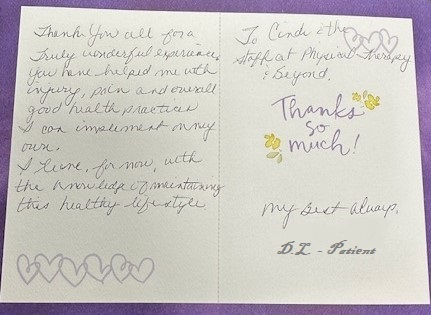 Thank You all for a
Truly wonderful experience.
You have helped me with
injury, pain and overall
good health practices
I can implement on my
own.
I leave, for now, with
the knowledge of maintaining
this healthy lifestyle
To Cindi & the
staff at Physical Therapy
& Beyond.
Thanks
so
much!
My Best Always,
D.L - Patient